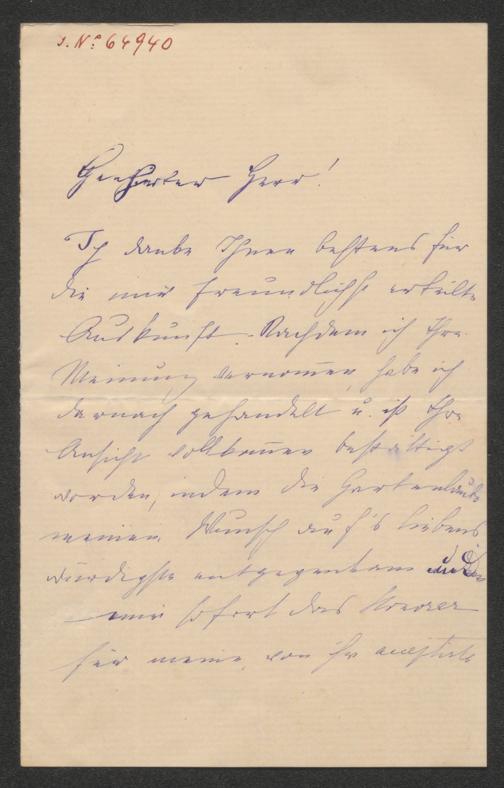 J. Nº 64940
Geehrter Herr!
Ich danke Ihnen bestens für
die mir freundlichst erteilte
Auskunft. Nachdem ich Ihre
Meinung vernommen, habe ich
darnach gehandelt u. ist Ihre
Ansicht vollkommen bestättigt
worden, indem die Gartenlaube
meinem Wunsch auf's liebens
würdigste entgegenkam
mir sofort das Honorar
für meine, von ihr